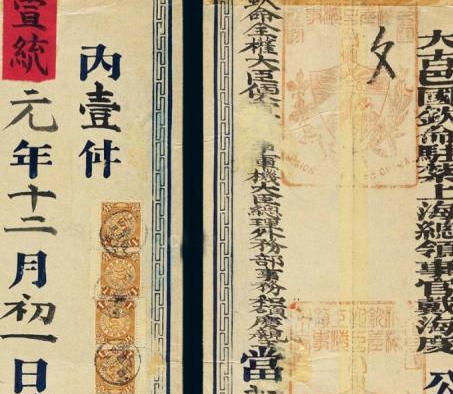 大古巴國欽命駐紮上海總領事官戴海度 公
文
欽命全權大臣便宜 軍機大臣總理外務部事務和碩慶親
當
內壹件
宣統元年十二月初一日